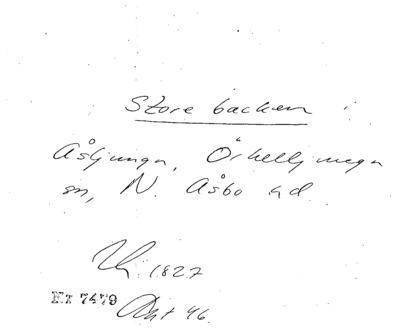 Store backen
Åsljunga, Örkelljunga
sn, N. Åsbo hd
1827
NI 7479 Okt 46.